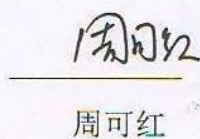 周可红
周可红